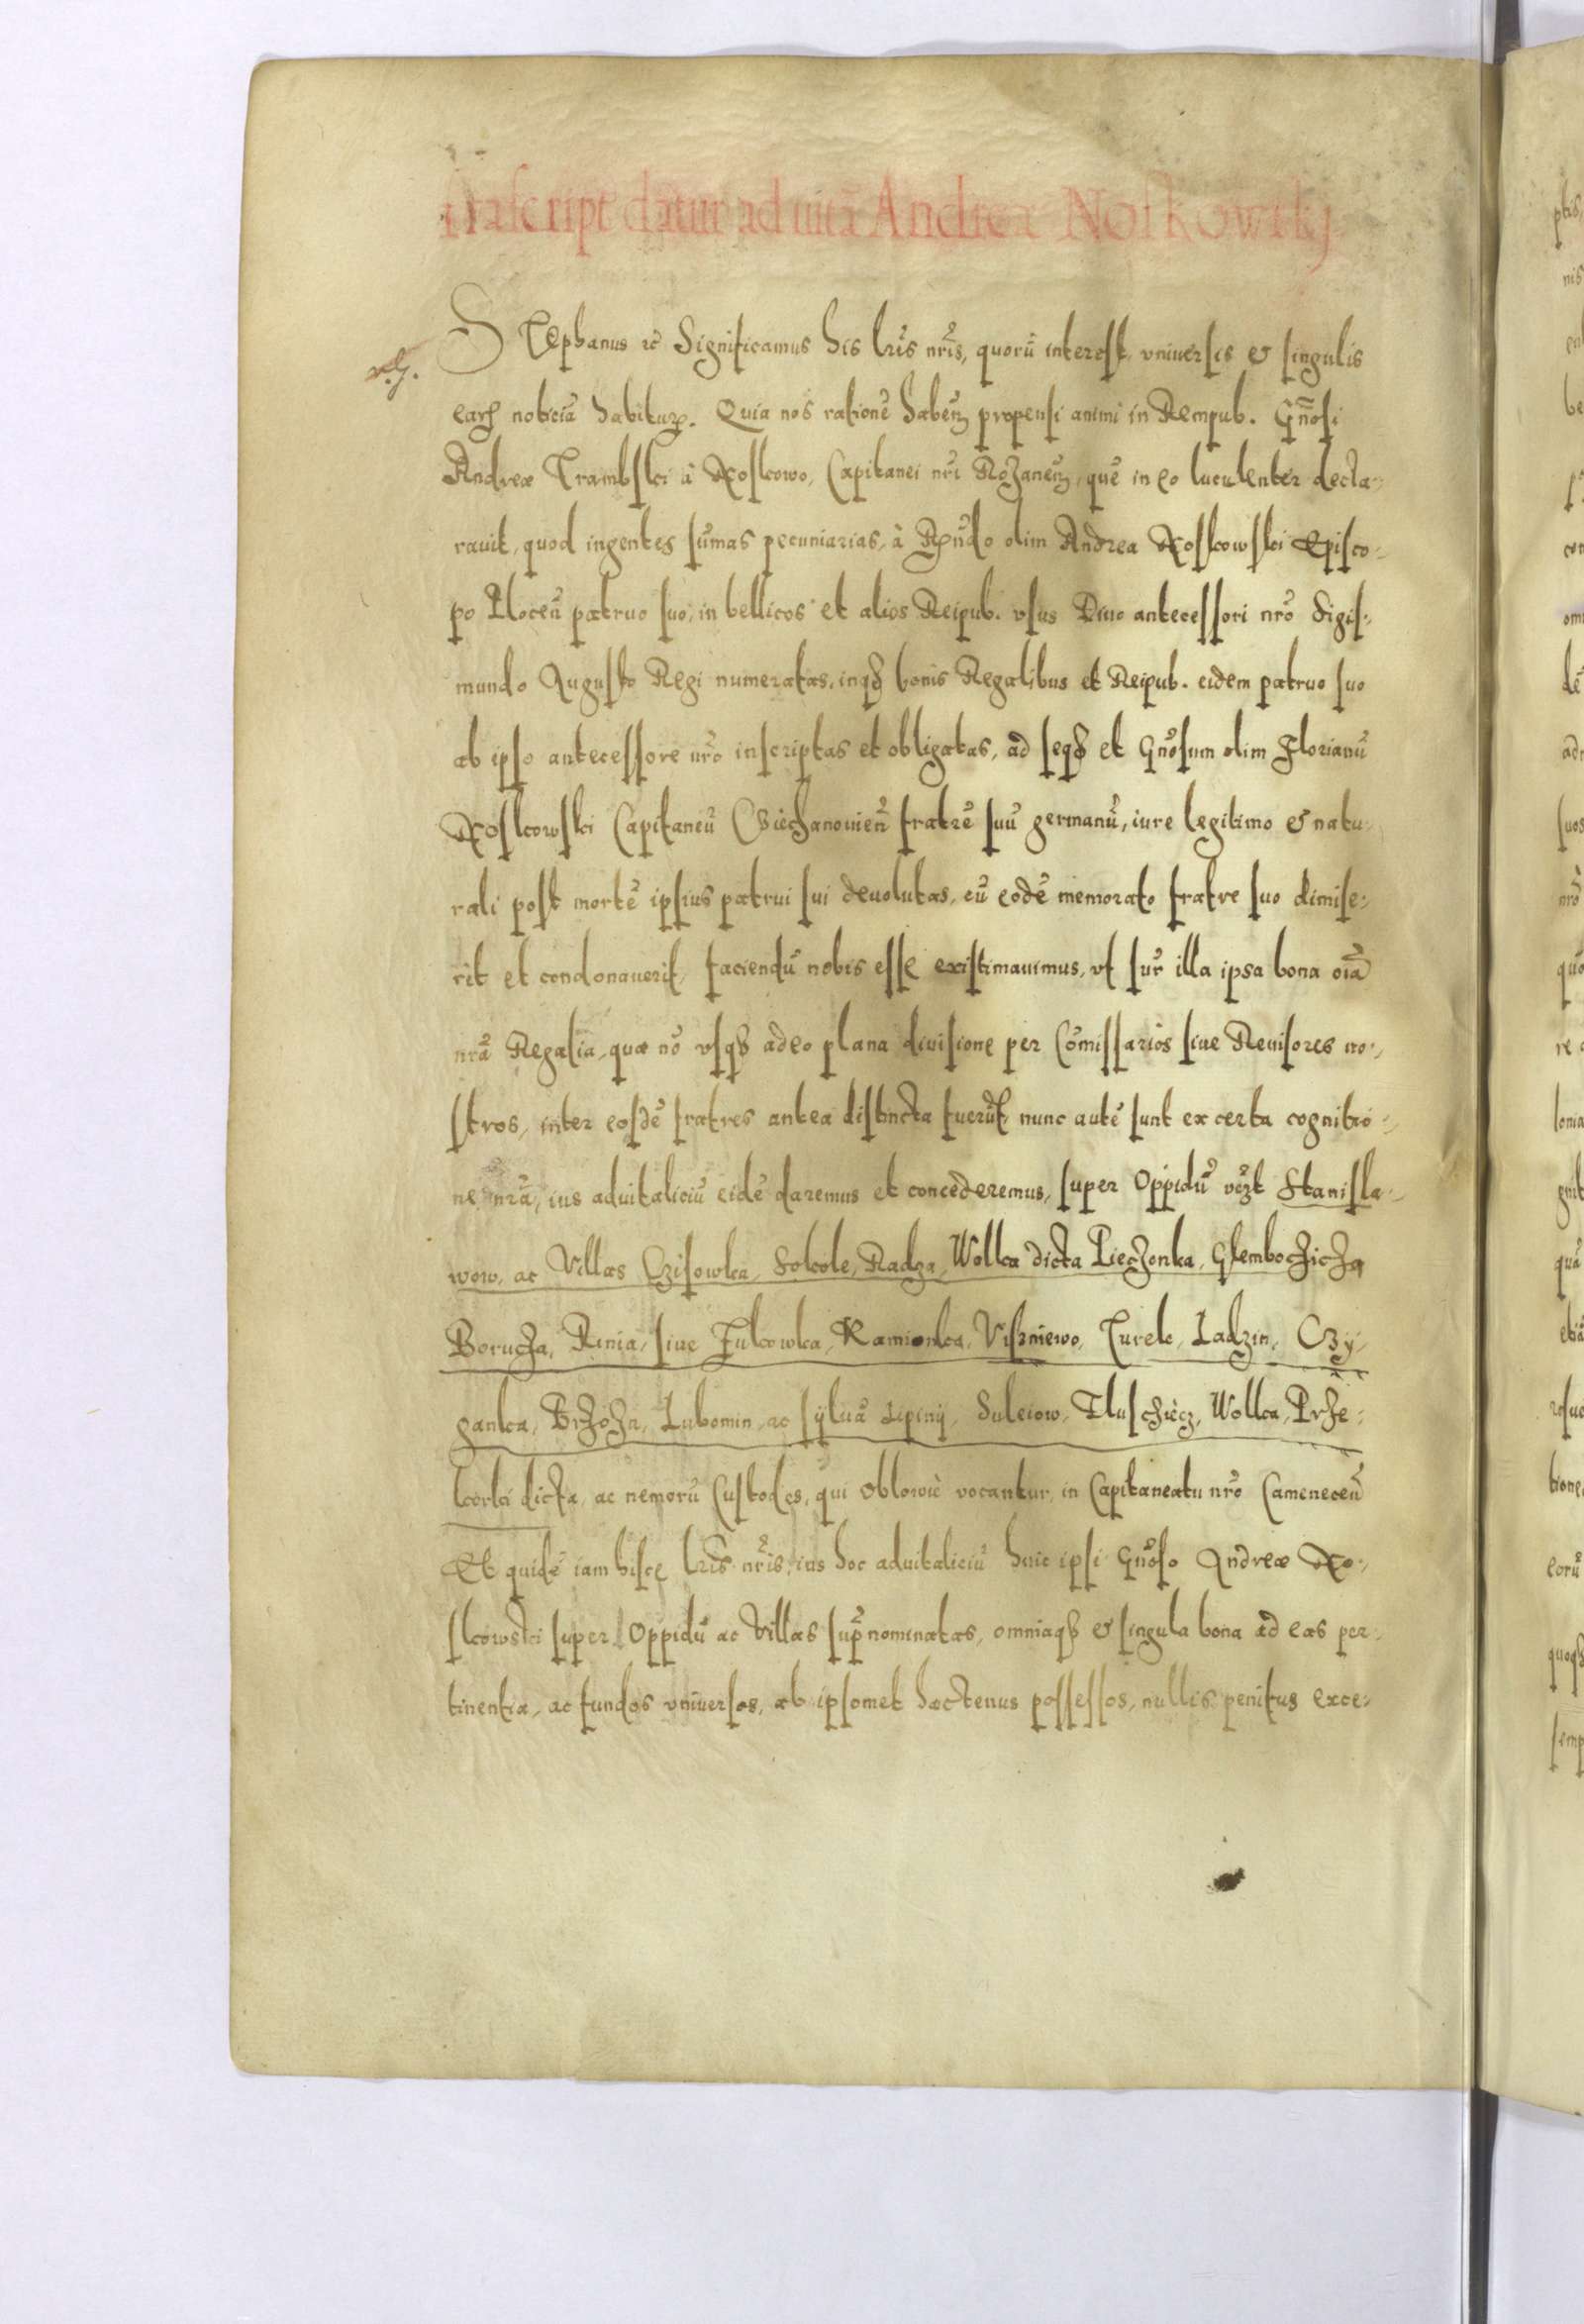 script datur ad uitā Andreæ Noskowskj
Stephanus etc Significamus his lr̄is nr̄is, quorū interest, vniuersis et singulis
earq noticiā habitur. Quia nos rationē haben propensi animi in Rempub. Gn̄osi
Andreæ à Noskowo, Capitanei nr̄i Rozanen, quē in eo luculenter decla-
rauit, quod ingentes sūmas pecuniarias, à Rn̄do olim Andrea Noskowski Episco-
po Plocen̄ patruo suo, in bellicos et alios Reipub. vsus Diuo antecessori nr̄o Sigis-
mundo Augusto Regi numeratas, inq bonis Regalibus et Reipub. eidem patruo suo
ab ipso antecessore nr̄o inscriptas et obligatas, ad seq et Gn̄osum olim Florianū
Noskowski Capitaneū Cziechanouien̄ fratrē suū germanū, iure legitimo et natu-
rali post mortē ipsius patrui sui deuolutas, cū eodē memorato fratre suo dimise-
rit et condonauerit, faciendū nobis esse existimauimus, vt sup̄ illa ipsa bona oīa
nr̄a Regalia, quæ nō vsq adeo plana diuisione per Cōmissarios siue Reuisores no-
stros, inter eosdē fratres antea distincta fuerūt, nunc autē sunt ex certa cognitio-
ne nr̄a, ius aduitaliciū eidē daremus et concederemus, super Oppidū vczt Stanisla-
wow, ac Villas Czisowka, Sokole, Radza, Wolka dicta Pieczonka, Glemboczicza
Borucza, Rinia, siue Fulkowka, Kamionka, Viszniewo, Turek, Ladzin, Czy-
ganka, Brzoza, Lubomin, ac syluā Lipiny, Suleiow, Tluschicz, Wolka, Prze-
korki dicta, ac nemorū Custodes, qui Oblowie vocantur, in Capitaneatu nr̄o Camenecen̄
Et quidē iam hisce lr̄is nr̄is, ius hoc aduitaliciū huic ipsi Gn̄oso Andreæ No-
skowski super Oppidū ac Villas sup̄nominatas, omniaq et singula bona ad eas per-
tinentia, ac fundos vniuersos, ab ipsomet hactenus possessos, nullis penitus exce-